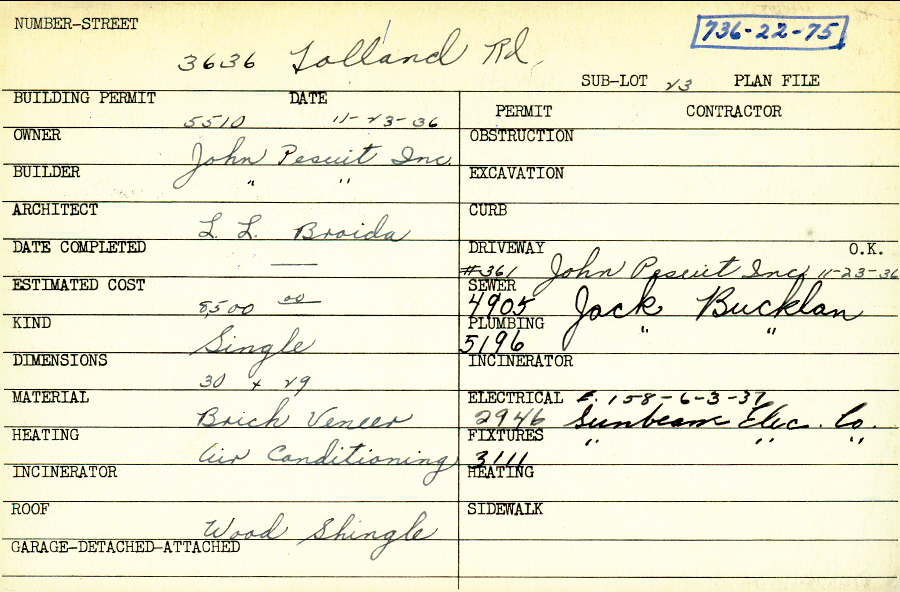 NUMBER-STREET
736-22-75
3636 Tolland Rd.
SUB-LOT 23 PLAN FILE
BUILDING PERMIT DATE
5510 11-23-36
PERMIT CONTRACTOR
OWNER
John Pescuit Inc.
OBSTRUCTION
BUILDER
" "
EXCAVATION
ARCHITECT
L. L. Broida
CURB
DATE COMPLETED
—
DRIVEWAY O.K.
#361 John Pescuit Inc 11-23-36
ESTIMATED COST
8500 00
SEWER
4905 Jack Bucklan
KIND
Single
PLUMBING
5196 " "
DIMENSIONS
30 x 29
INCINERATOR
MATERIAL
Brick Veneer
ELECTRICAL E. 158-6-3-37
2946 Sunbeam Elec. Co.
HEATING
Air Conditioning
FIXTURES
3111 " " "
INCINERATOR
HEATING
ROOF
Wood Shingle
SIDEWALK
GARAGE-DETACHED-ATTACHED